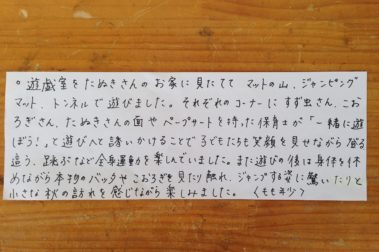 。遊戯室をたぬきさんのお家に見たてて マットの山、ジャンピング
マット、トンネルで遊びました。それぞれのコーナーにすず虫さん、こお
ろぎさん、たぬきさんの面やペープサートを持った保育士が「一緒に遊
ぼう！」と遊びへと誘いかけることで子どもたちも笑顔を見せながら登る
這う、跳ぶなど全身運動を楽しんでいました。また遊びの後は身体を休
めながら本物のバッタやこおろぎを見たり触れ、ジャンプする姿に驚いたりと
小さな秋の訪れを感じながら楽しみました。